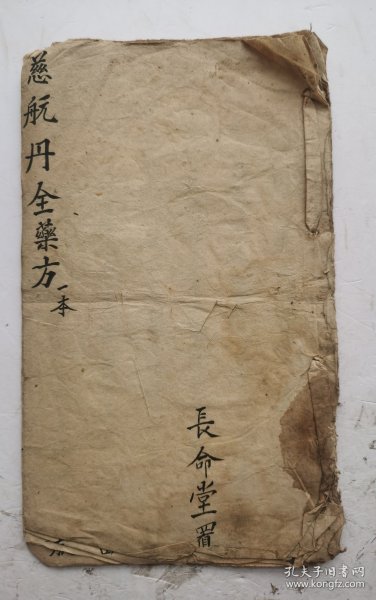 慈航丹全藥方一本
長命堂置
孔夫子旧书网
www.kongfz.com